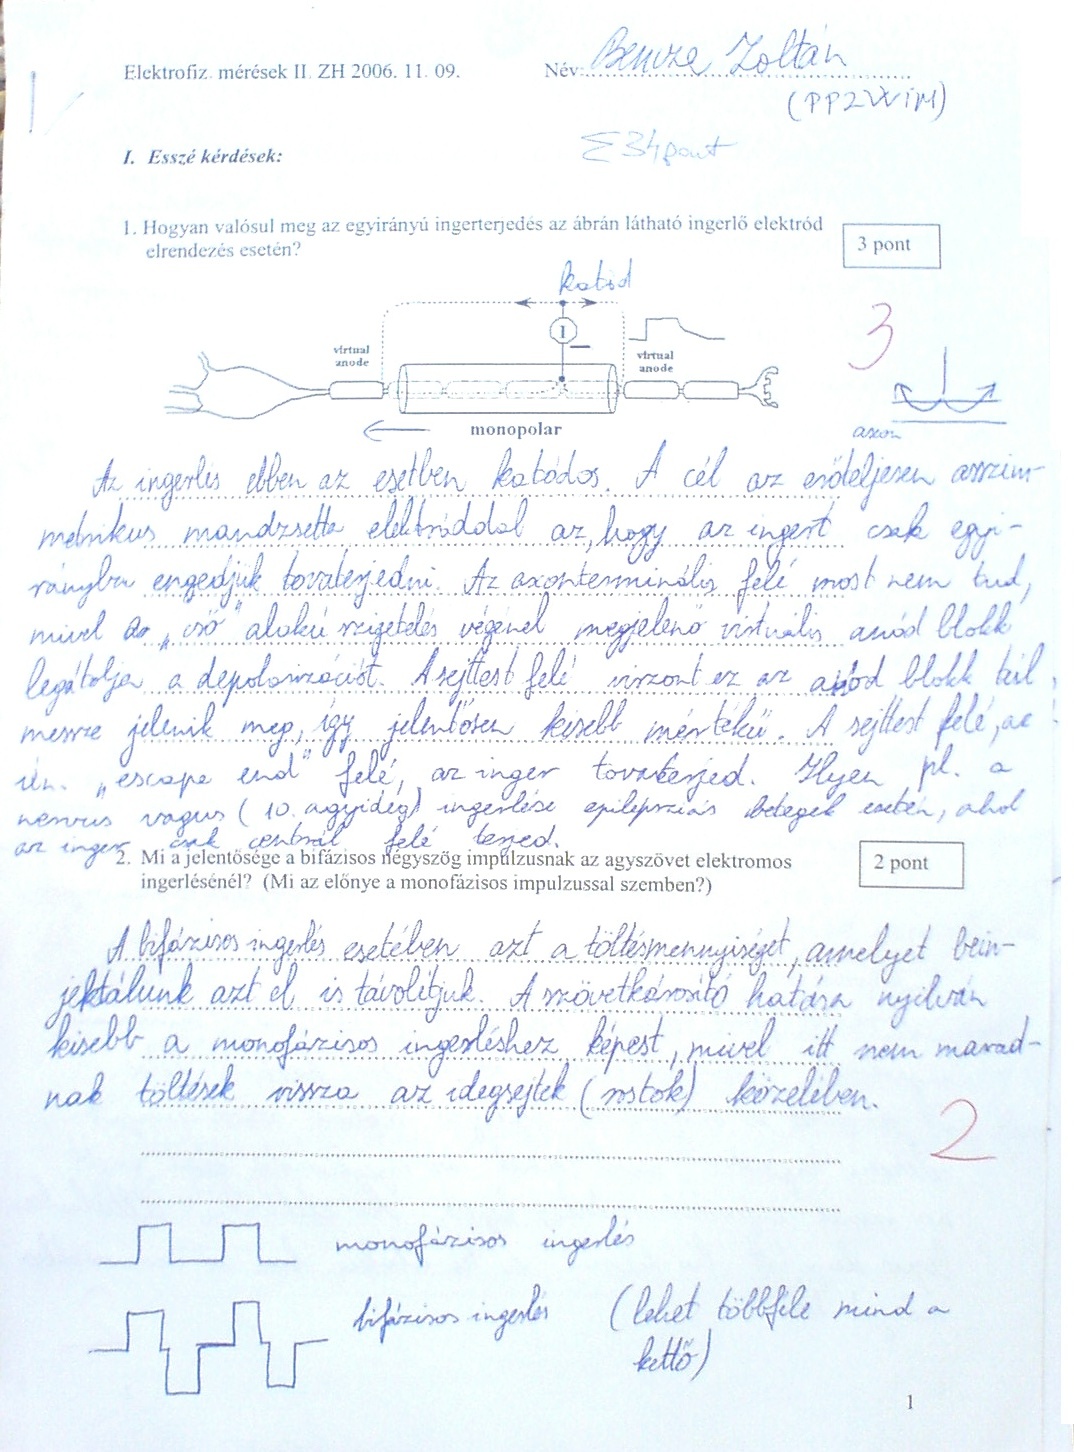 Elektrofiz. mérések II. ZH 2006. 11. 09.
Név: Bencze Zoltán
(PP2WIM)
Σ 34 pont
I. Esszé kérdések:
1. Hogyan valósul meg az egyirányú ingerterjedés az ábrán látható ingerlő elektród
elrendezés esetén?
3 pont
katód
I
−
virtual
anode
virtual
anode
monopolar
3
axon
Az ingerlés ebben az esetben katódos. A cél az erőteljesen asszim-
metrikus mandzsetta elektróddal az, hogy az ingert csak egyi-
rányba engedjük tovaterjedni. Az axonterminális felé most nem tud,
mivel a „cső" alakú szigetelés végénél megjelenő virtuális anód blokk
legátolja a depolarizációt. A sejttest felé viszont ez az anód blokk túl
messze jelenik meg, így jelentősen kisebb mértékű. A sejttest felé, az
ún. „escape end" felé, az inger tovaterjed. Ilyen pl. a
nervus vagus (10. agyideg) ingerlése epilepsziás betegek esetén, ahol
az inger csak centrál felé terjed.
2. Mi a jelentősége a bifázisos négyszög impulzusnak az agyszövet elektromos
ingerlésénél? (Mi az előnye a monofázisos impulzussal szemben?)
2 pont
A bifázisos ingerlés esetében azt a töltésmennyiséget, amelyet bein-
jektálunk azt el is távolítjuk. A szövetkárosító hatása nyilván
kisebb a monofázisos ingerléshez képest, mivel itt nem marad-
nak töltések vissza az idegsejtek (rostok) közelében.
2
monofázisos ingerlés
bifázisos ingerlés (lehet többféle mind a
kettő)
1